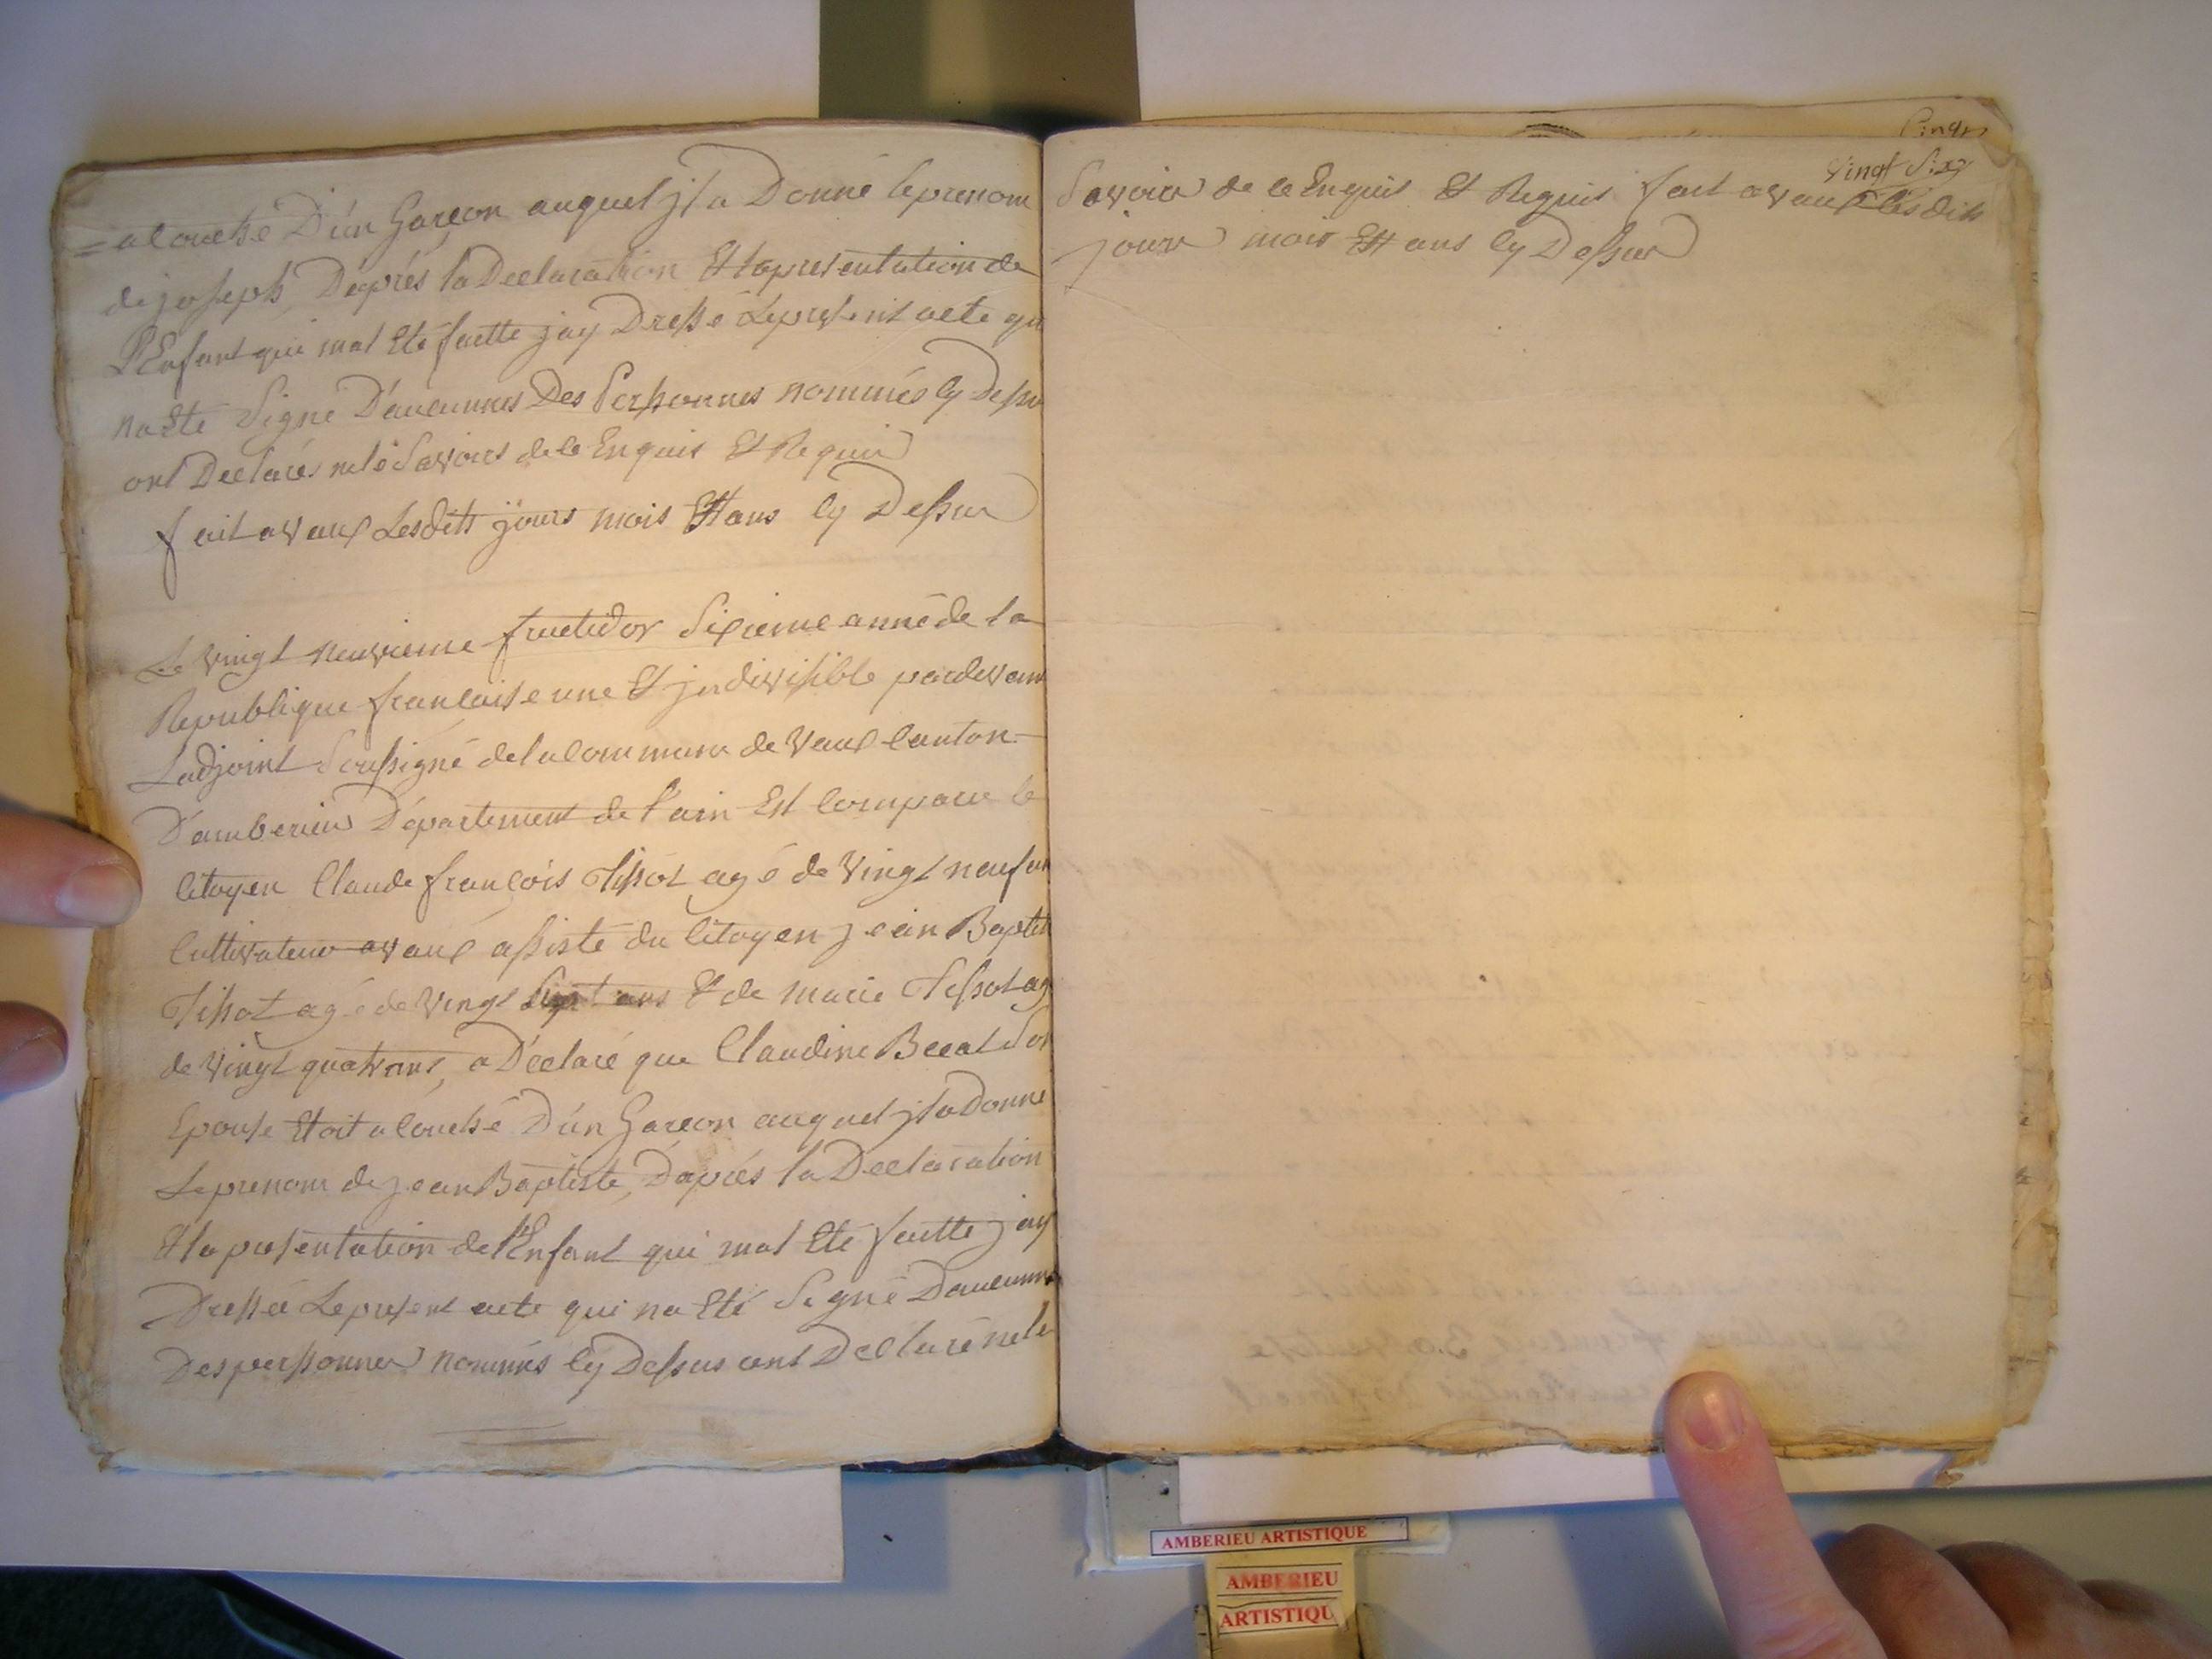 = a louché D'un Garçon auquel jl a Donné le prenom
de joseph, D'après la Declaration Et la presentation de
L'Enfant qui mat Eté faitte jay Dressé Le present acte qu
na Eté Signé D'aucunnes Des Personnes nommés Cy Dessu
ont Declarés ne le Savoirs de le Enquis Et Requis
fait a Vaux Lesdits jours mois Et ans Cy Dessus
Le Vingt neuvieme fructidor Sixieme anné de la
Republique française une Et jndivisible pardevant
Ladjoint Soussigné de la Commune de Vaux Canton
D'amberieu Département de l'ain Est Comparu le
Citoyen Claude françois Tissot agé de Vingt neuf an
Cultivateur a Vaux assisté du Citoyen jean Baptit
Tissot agé de Vingt Sept ans Et de marie Tissot ag
de Vingt quatr ans, a Déclaré que Claudine Beeat Son
Epouse Etoit a Couché D'un Garçon auquel jl a Donné
Le prenom de jean Baptiste, D'après la Declaration
Et la presentation de l'Enfant qui mat Eté faitte jay
Dressée Le present acte qui na Eté Signé Daucunne
Des personnes nommés Cy Dessus ont Déclaré ne le
Vingt Six
Savoir de le Enquis Et Requis fait a Vaux lesdits
jours mois Et ans Cy Dessus
AMBERIEU ARTISTIQUE
AMBERIEU
ARTISTIQU